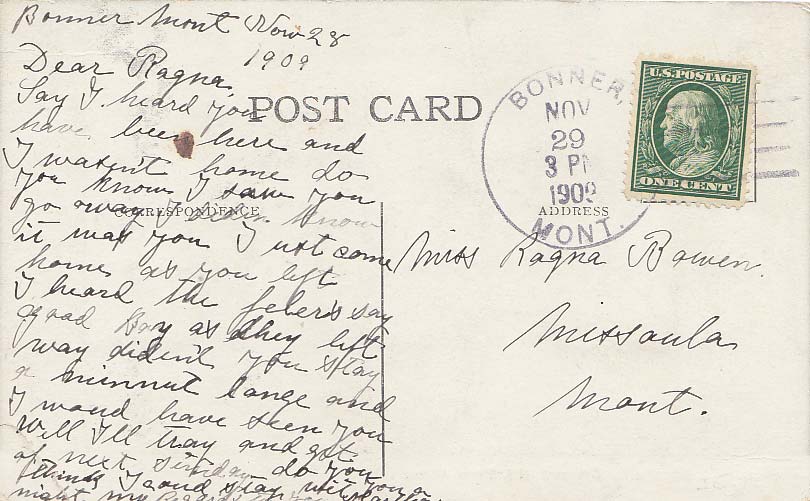 Bonner Mont Nov 28
1909
Dear Ragna,
Say I heard you
have been here and
I wasen't home do
you know I saw you
go away I know
it was you I ust come
home as you left
I heard the say
good as they left
way diden't you stay
a minnut lange and
I woud have seen you
will I'll tray and get
of next do you
think I coud stay
night my
POST CARD
CORRESPONDENCE
ADDRESS
BONNER,
NOV
29
3 PM
1909
MONT.
U.S. POSTAGE
ONE CENT
Miss Ragna Bowen.
Missoula
Mont.